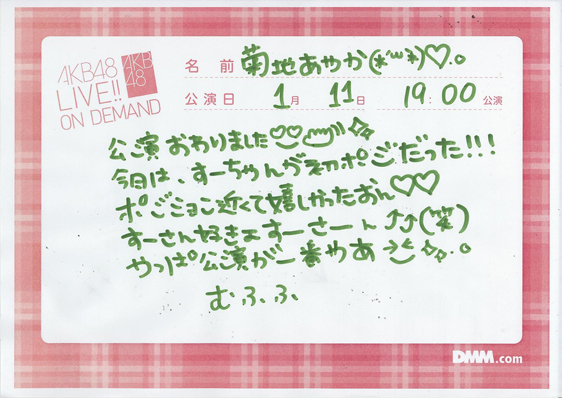 AKB48
LIVE!!
ON DEMAND
AKB
48
名 前 菊地あやか(*´ω`*)♡.o
公演日 1月 11日 19:00 公演
公演おわりました
今日は、すーちゃんが初ポジだった!!!
ポジション近くて嬉しかったおん♡♡
すーさん好きよすーさーん↑↑(笑)
やっぱ公演が一番やあ
むふふ、
DMM.com